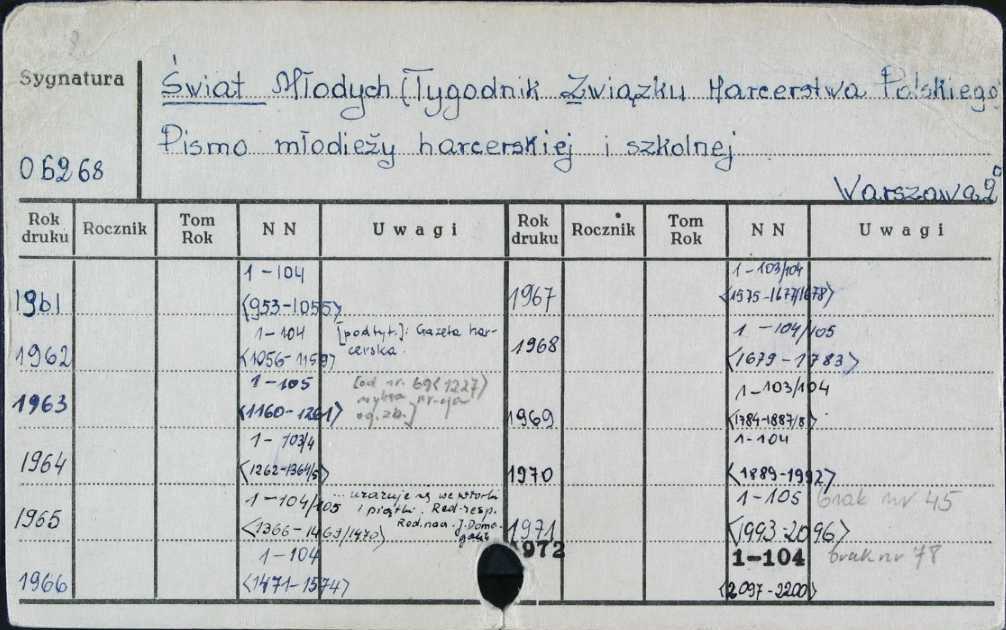 Sygnatura
Świat Młodych [Tygodnik Związku Harcerstwa Polskiego
Pismo młodzieży harcerskiej i szkolnej
06268
Warszawa 2°
Rok druku Rocznik Tom Rok NN Uwagi Rok druku Rocznik Tom Rok NN Uwagi
1961 1-104 <953-1055>
1962 1-104 <1056-1159> [podtyt.]: Gazeta harcerska.
1963 1-105 <1160-1261> [od nr. 69<1227> nr-cja og. zb.]
1964 1-103/4 <1262-1364/5>
1965 1-104/105 <1366-1469/1470> ...ukazuje się we wtorki i piątki. Red-resp. Red. nacz. J. Domagalik
1966 1-104 <1471-1574>
1967 1-103/104 <1575-1677/1678>
1968 1-104/105 <1679-1783>
1969 1-103/104 <1784-1887/8>
1970 1-104 <1889-1992>
1971 1-105 <1993-2096> brak nr 45
1972 1-104 <2097-2200> brak nr 78